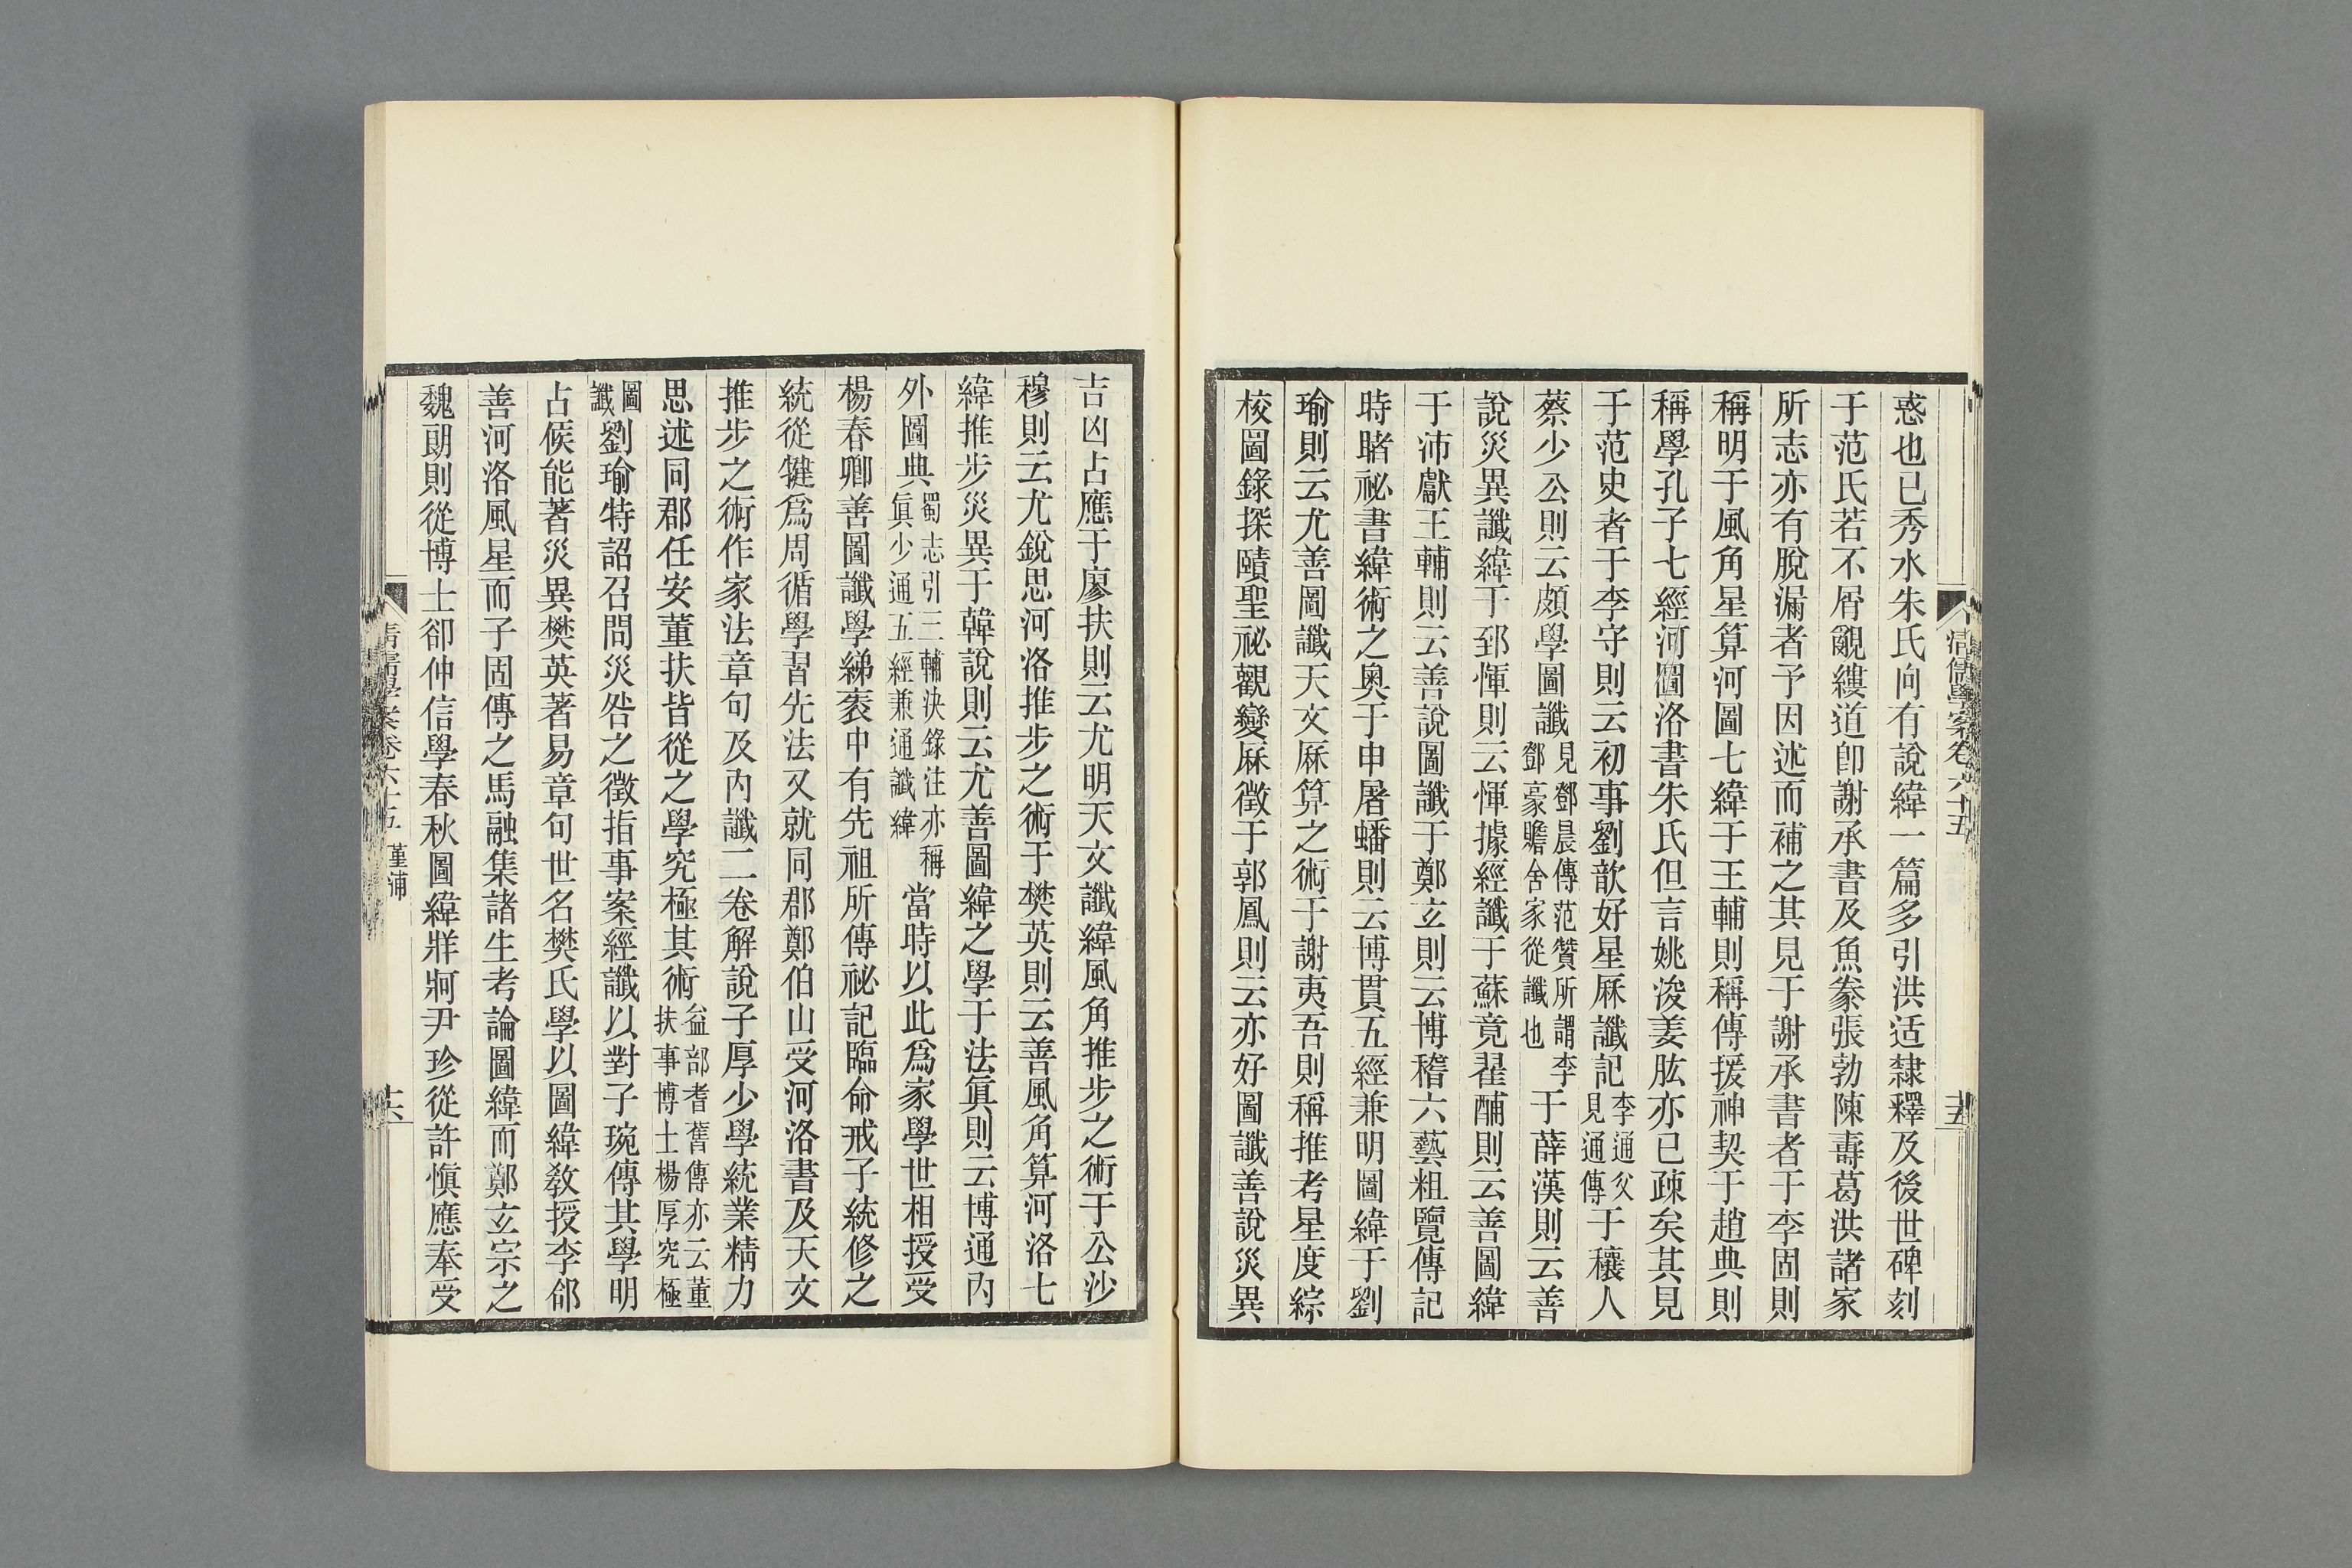 清儒學案卷六十五
十五
惑也已秀水朱氏向有說緯一篇多引洪适隸釋及後世碑刻
于范氏若不屑覼縷道卽謝承書及魚豢張勃陳壽葛洪諸家
所志亦有脫漏者予因述而補之其見于謝承書者于李固則
稱明于風角星算河圖七緯于王輔則稱傳援神契于趙典則
稱學孔子七經河圖洛書朱氏但言姚浚姜肱亦已疎矣其見
于范史者于李守則云初事劉歆好星厤讖記李通父見通傳于穰人
蔡少公則云頗學圖讖見鄧晨傳范贊所謂李鄧豪贍舍家從讖也于薛漢則云善
說災異讖緯于郅惲則云惲據經讖于蘇竟翟酺則云善圖緯
于沛獻王輔則云善說圖讖于鄭玄則云博稽六藝粗覽傳記
時睹祕書緯術之奧于申屠蟠則云博貫五經兼明圖緯于劉
瑜則云尤善圖讖天文厤算之術于謝夷吾則稱推考星度綜
校圖錄探賾聖祕觀變厤徵于郭鳳則云亦好圖讖善說災異
吉凶占應于廖扶則云尤明天文讖緯風角推步之術于公沙
穆則云尤銳思河洛推步之術于樊英則云善風角算河洛七
緯推步災異于韓說則云尤善圖緯之學于法眞則云博通內
外圖典蜀志引三輔決錄注亦稱眞少通五經兼通讖緯當時以此爲家學世相授受
楊春卿善圖讖學綈袠中有先祖所傳祕記臨命戒子統修之
統從犍爲周循學習先法又就同郡鄭伯山受河洛書及天文
推步之術作家法章句及內讖二卷解說子厚少學統業精力
思述同郡任安董扶皆從之學究極其術益部耆舊傳亦云董扶事博士楊厚究極
圖讖劉瑜特詔召問災咎之徵指事案經讖以對子琬傳其學明
占候能著災異樊英著易章句世名樊氏學以圖緯敎授李郃
善河洛風星而子固傳之馬融集諸生考論圖緯而鄭玄宗之
魏朗則從博士卻仲信學春秋圖緯牂牁尹珍從許愼應奉受
清儒學案卷六十五 堇浦
十六